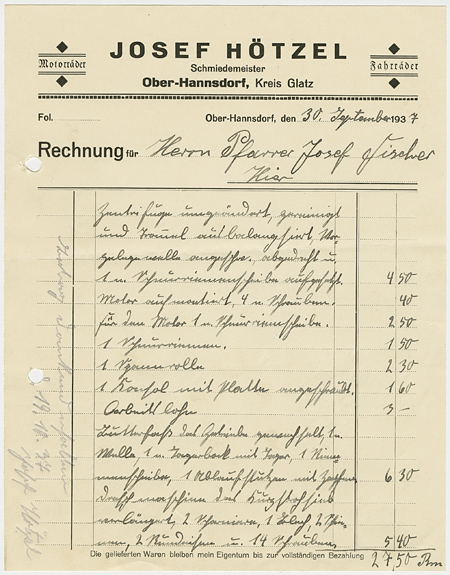 JOSEF HÖTZEL
Schmiedemeister
Motorräder
Fahrräder
Ober-Hannsdorf, Kreis Glatz
Fol.
Ober-Hannsdorf, den 30. September 1937
Rechnung für Herrn Pfarrer Josef Fischer
Hier
Zentrifuge umgeändert, gereinigt
und Tromel ausbalangsiert, Vor-
gelegewelle angeschw., abgedreht u.
1 n. Schnurriemenscheibe aufgesetzt. 4 50
Motor aufmontiert, 4 n. Schrauben. 40
für den Motor 1 n. Schnurriemscheibe. 2 50
1 Schnurriemen. 1 50
1 Spannrolle 2 30
1 Konsol mit Platte angeschraubt. 1 60
Arbeitslohn 3 —
Butterfaß das Getriebe gewechselt, 1 n.
Welle 1 n. Lagerbock mit Lager, 1 Riem-
menscheibe, 1 Ablaufstutzen mit 6 30
Dreschmaschinen das Kurzstohsieb
verlängert, 2 Scharniere, 1 Blech, 2
2 u. 14 Schrauben, 5 40
Die gelieferten Waren bleiben mein Eigentum bis zur vollständigen Bezahlung
27 50 Rm
Betrag dankend erhalten
d. 19. 10. 37
Josef Hötzel